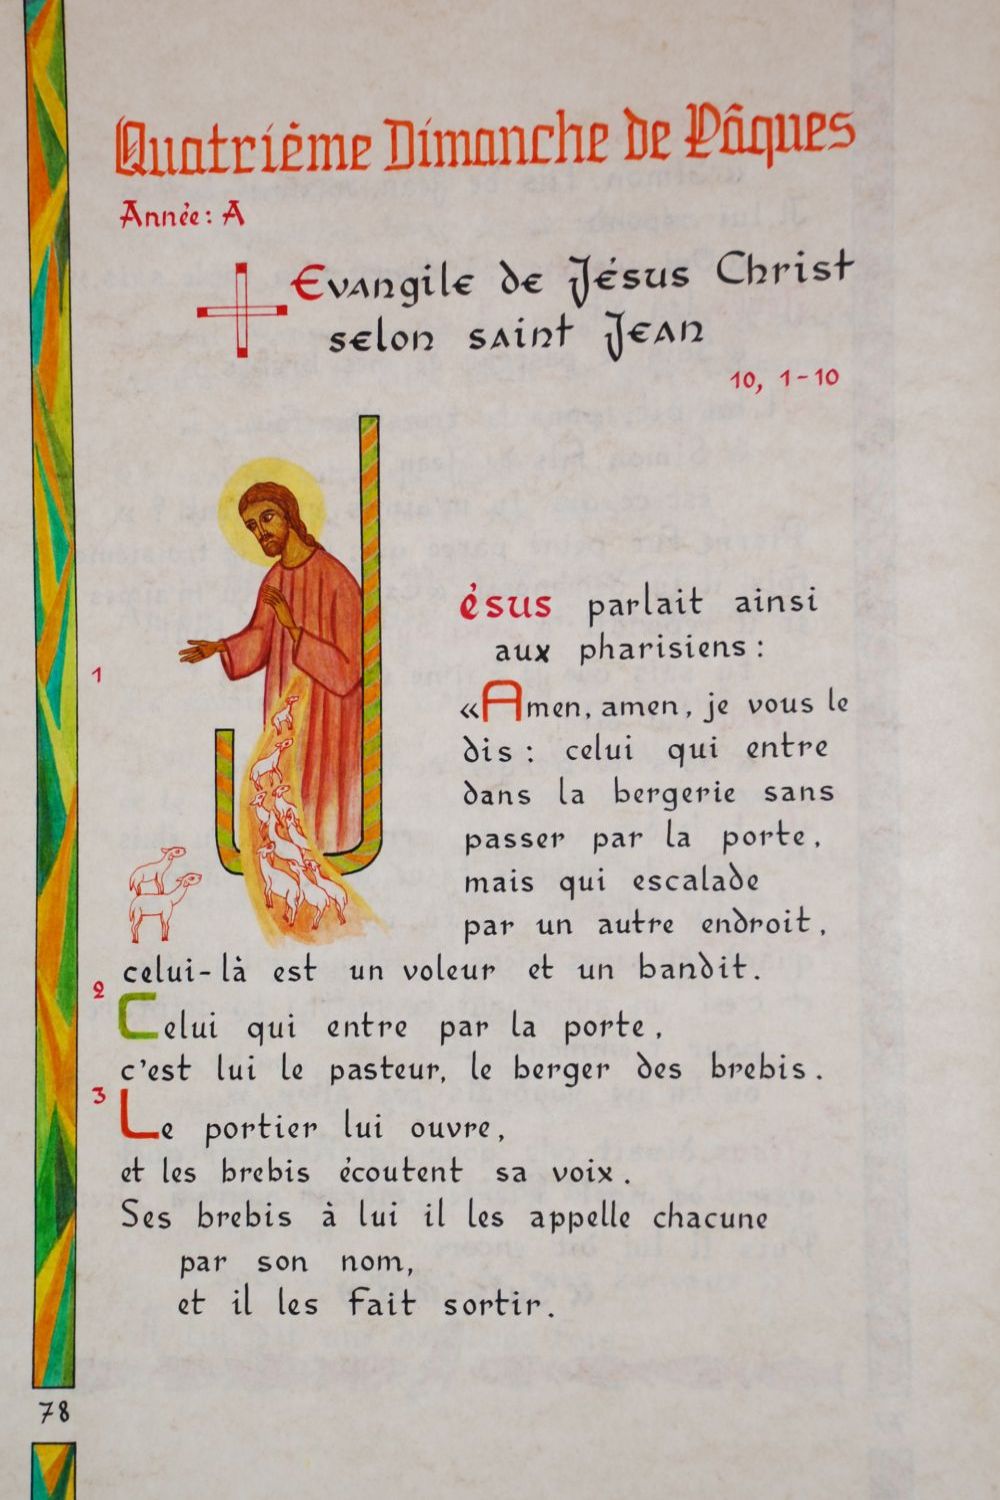 Quatrième Dimanche de Pâques
Année : A
Evangile de Jésus Christ
selon saint Jean
10, 1-10
Jésus parlait ainsi
aux pharisiens :
1
«Amen, amen, je vous le
dis : celui qui entre
dans la bergerie sans
passer par la porte,
mais qui escalade
par un autre endroit,
celui-là est un voleur et un bandit.
2
Celui qui entre par la porte,
c'est lui le pasteur, le berger des brebis.
3
Le portier lui ouvre,
et les brebis écoutent sa voix.
Ses brebis à lui il les appelle chacune
par son nom,
et il les fait sortir.
78